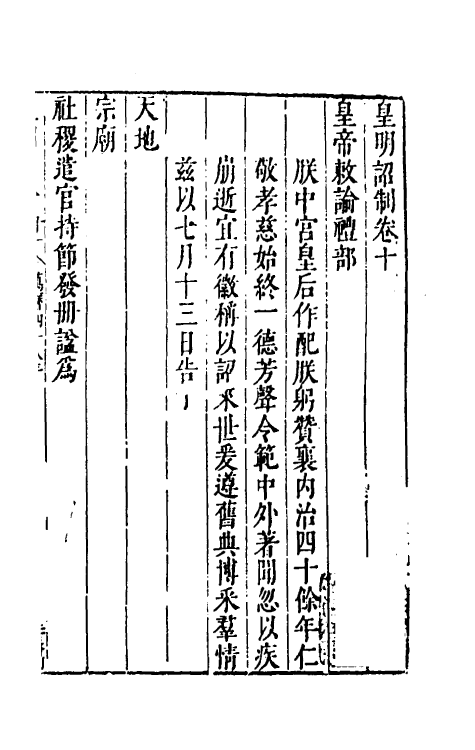 皇明詔制卷十
皇帝敕諭禮部
朕中宮皇后作配朕躬贊襄內治四十餘年仁
敬孝慈始終一德芳聲令範中外著聞忽以疾
崩逝宜有徽稱以詔來世爰遵舊典博采羣情
茲以七月十三日告
天地
宗廟
社稷遣官持節發冊諡爲